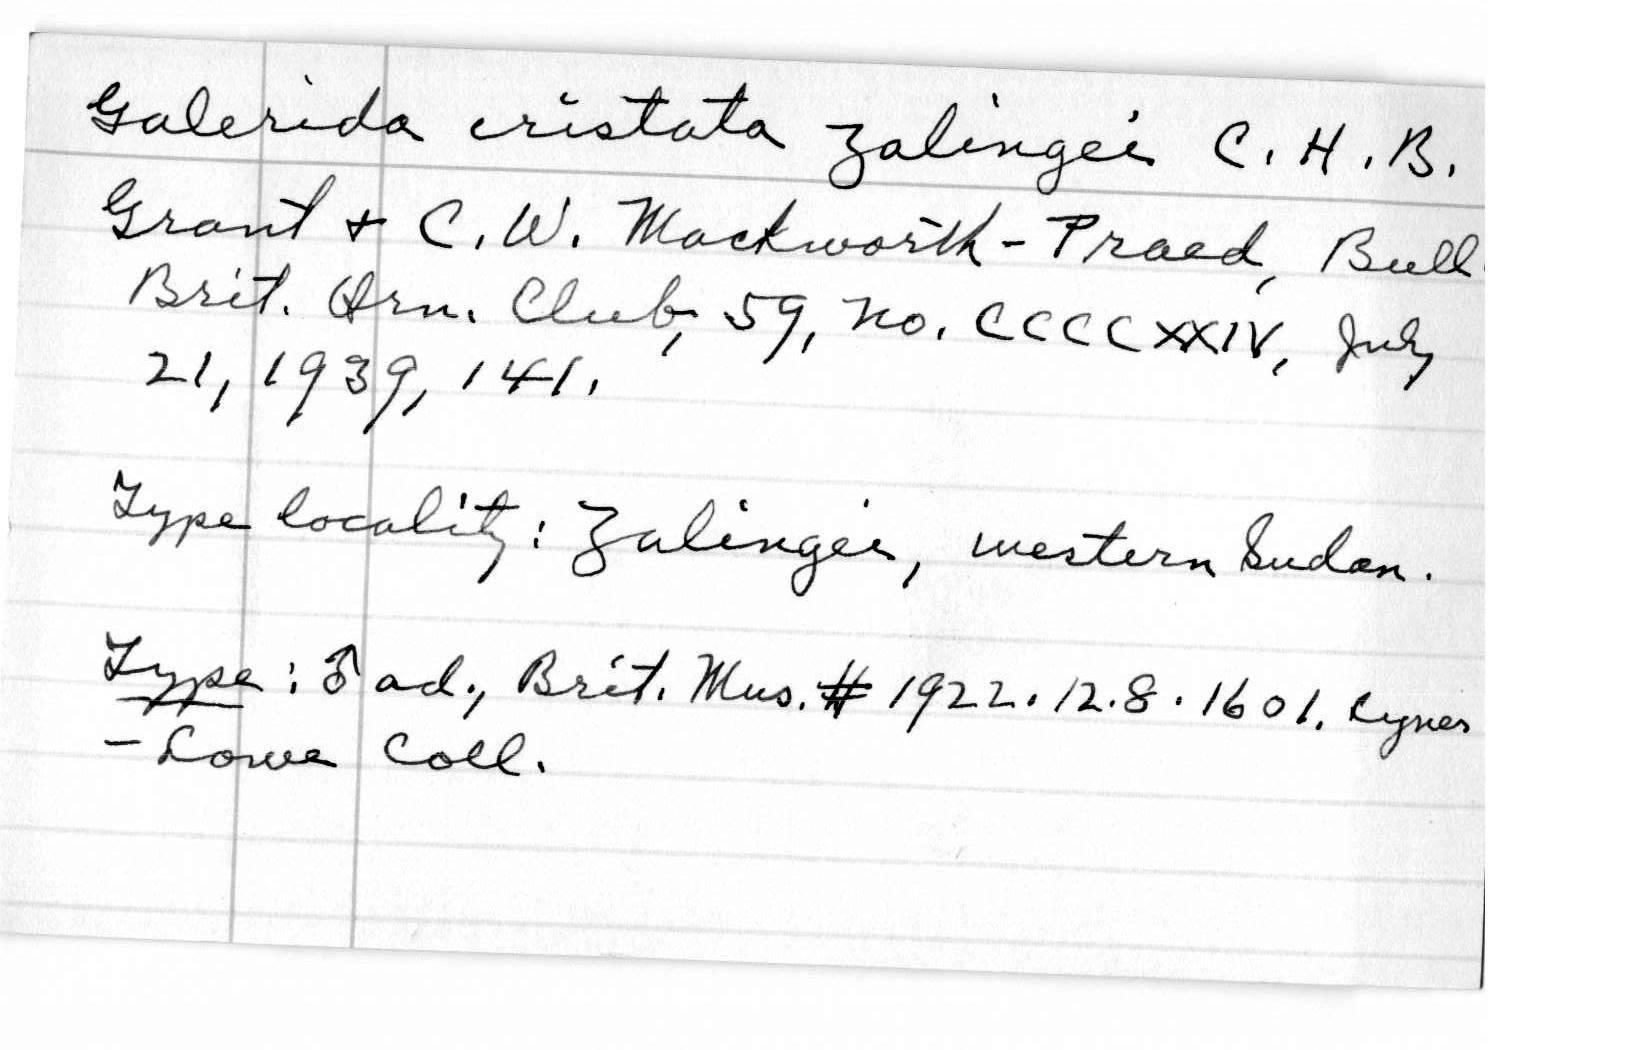 Galerida cristata zalingei C. H. B.
Grant + C. W. Mackworth-Praed, Bull.
Brit. Orn. Club, 59, no. CCCCXXIV, July
21, 1939, 141.
Type locality: Zalingei, western Sudan.
Type: ♂ ad., Brit. Mus. # 1922.12.8.1601. Lynes
- Lowe Coll.